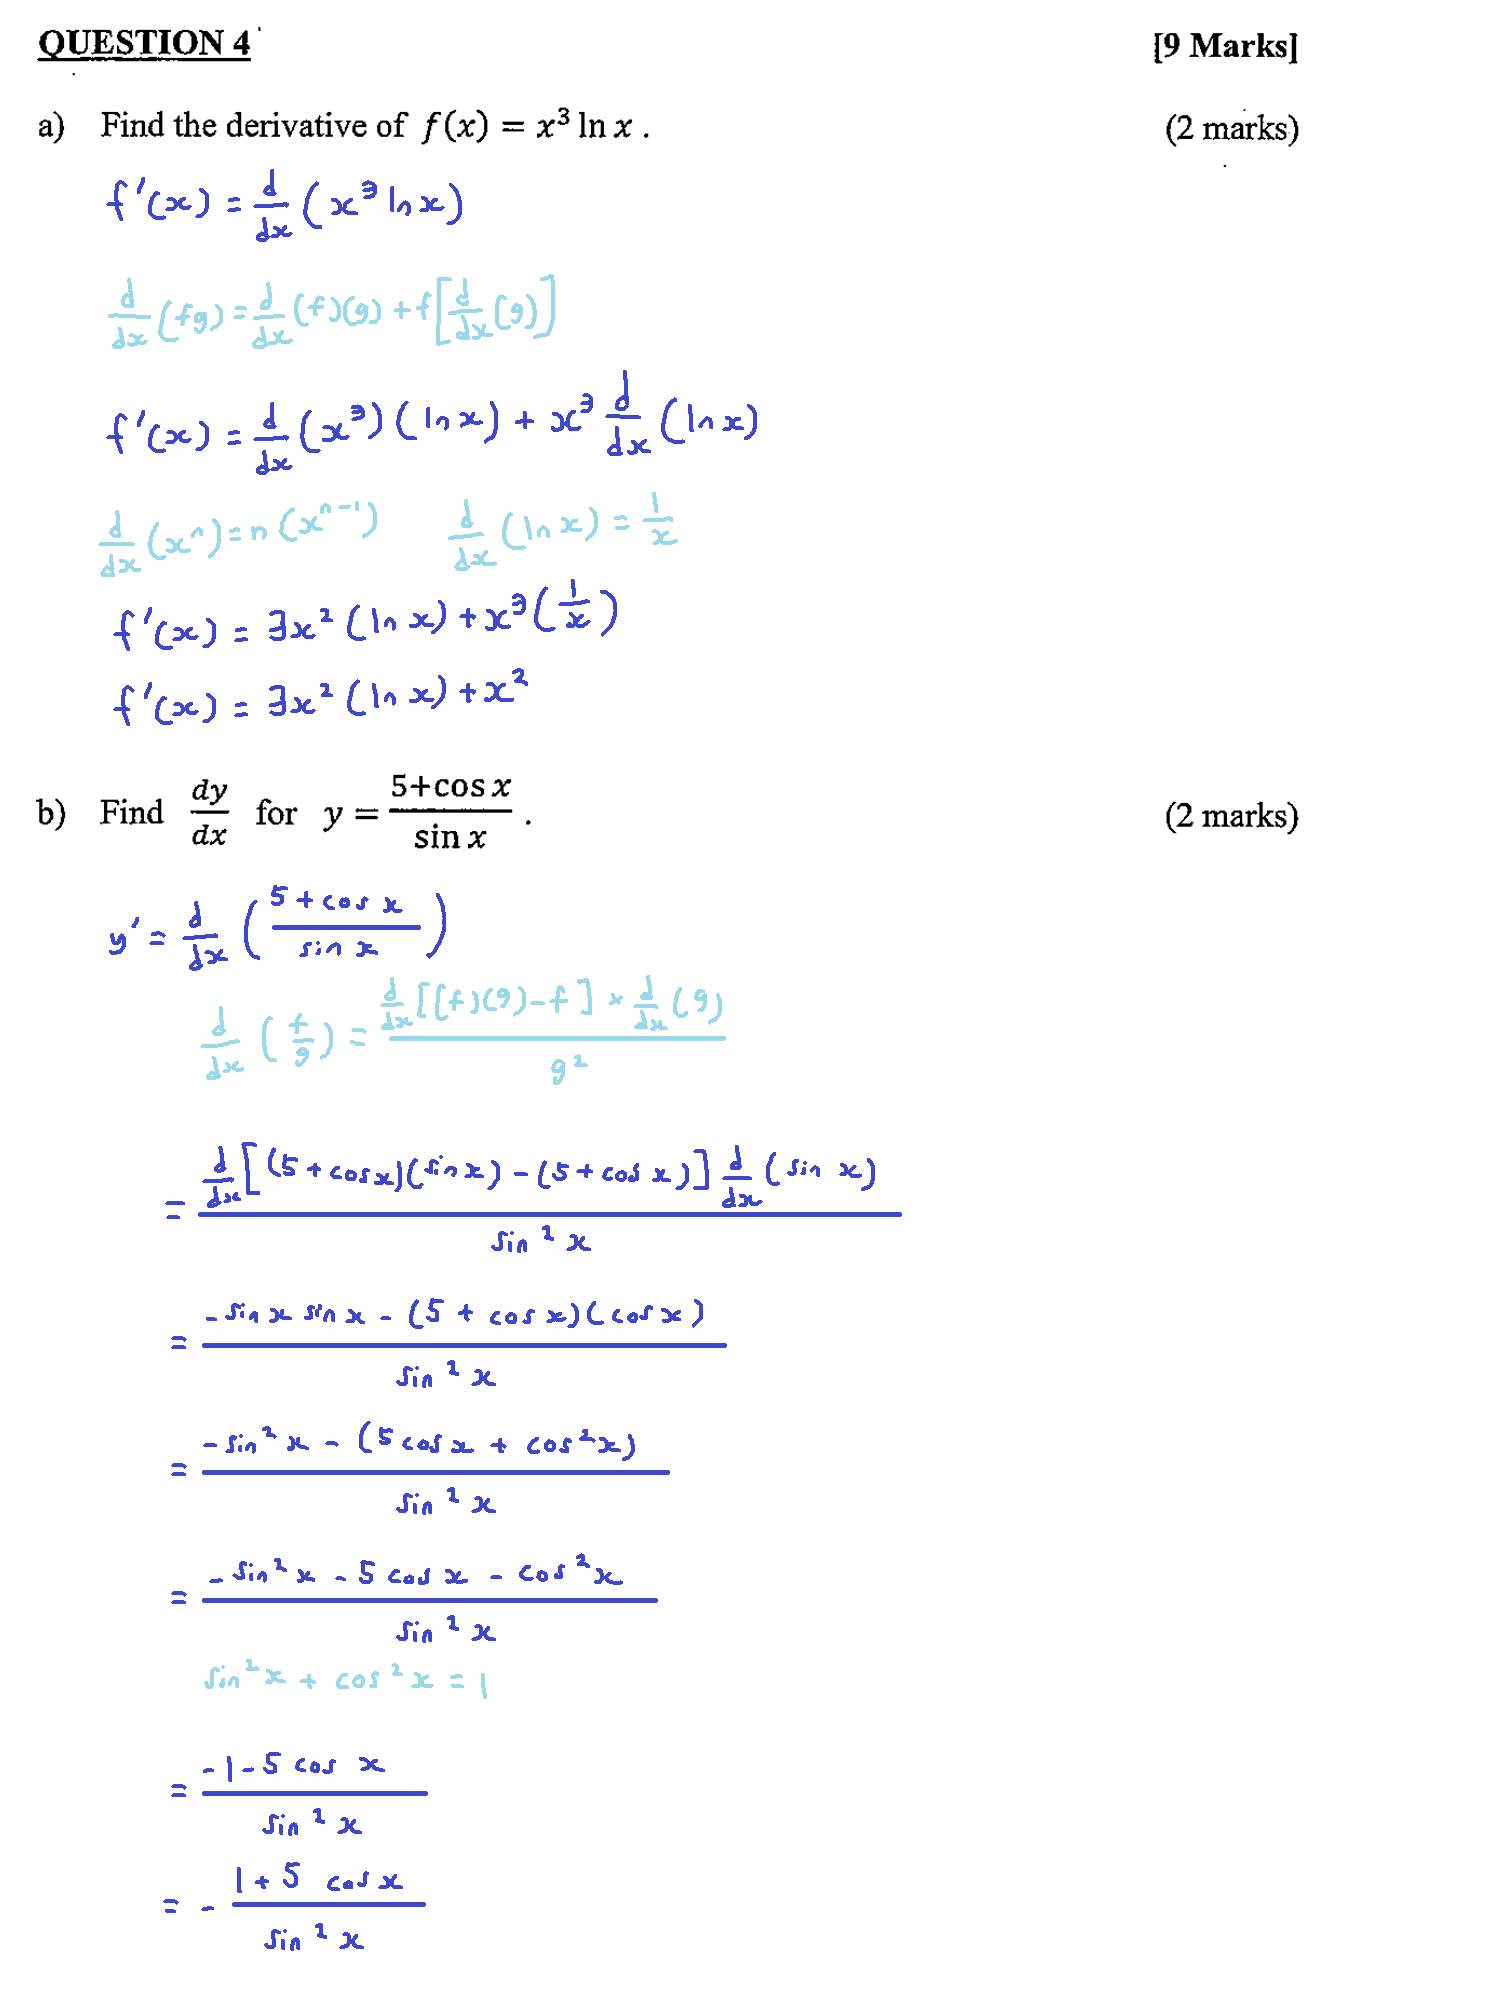 QUESTION 4 [9 Marks]
a) Find the derivative of f(x) = x³ ln x . (2 marks)
f'(x) = d/dx (x³ ln x)
d/dx (fg) = d/dx (f)(g) + f[d/dx (g)]
f'(x) = d/dx (x³)(ln x) + x³ d/dx (ln x)
d/dx (xⁿ) = n (xⁿ⁻¹) d/dx (ln x) = 1/x
f'(x) = 3x² (ln x) + x³ (1/x)
f'(x) = 3x² (ln x) + x²
b) Find dy/dx for y = (5+cos x)/(sin x) . (2 marks)
y' = d/dx ((5 + cos x)/(sin x))
d/dx (f/g) = (d/dx [(f)(g) - f] × d/dx (g))/(g²)
= (d/dx [(5 + cos x)(sin x) - (5 + cos x)] d/dx (sin x))/(sin² x)
= (- sin x sin x - (5 + cos x)(cos x))/(sin² x)
= (- sin² x - (5 cos x + cos² x))/(sin² x)
= (- sin² x - 5 cos x - cos² x)/(sin² x)
sin² x + cos² x = 1
= (-1 - 5 cos x)/(sin² x)
= - (1 + 5 cos x)/(sin² x)